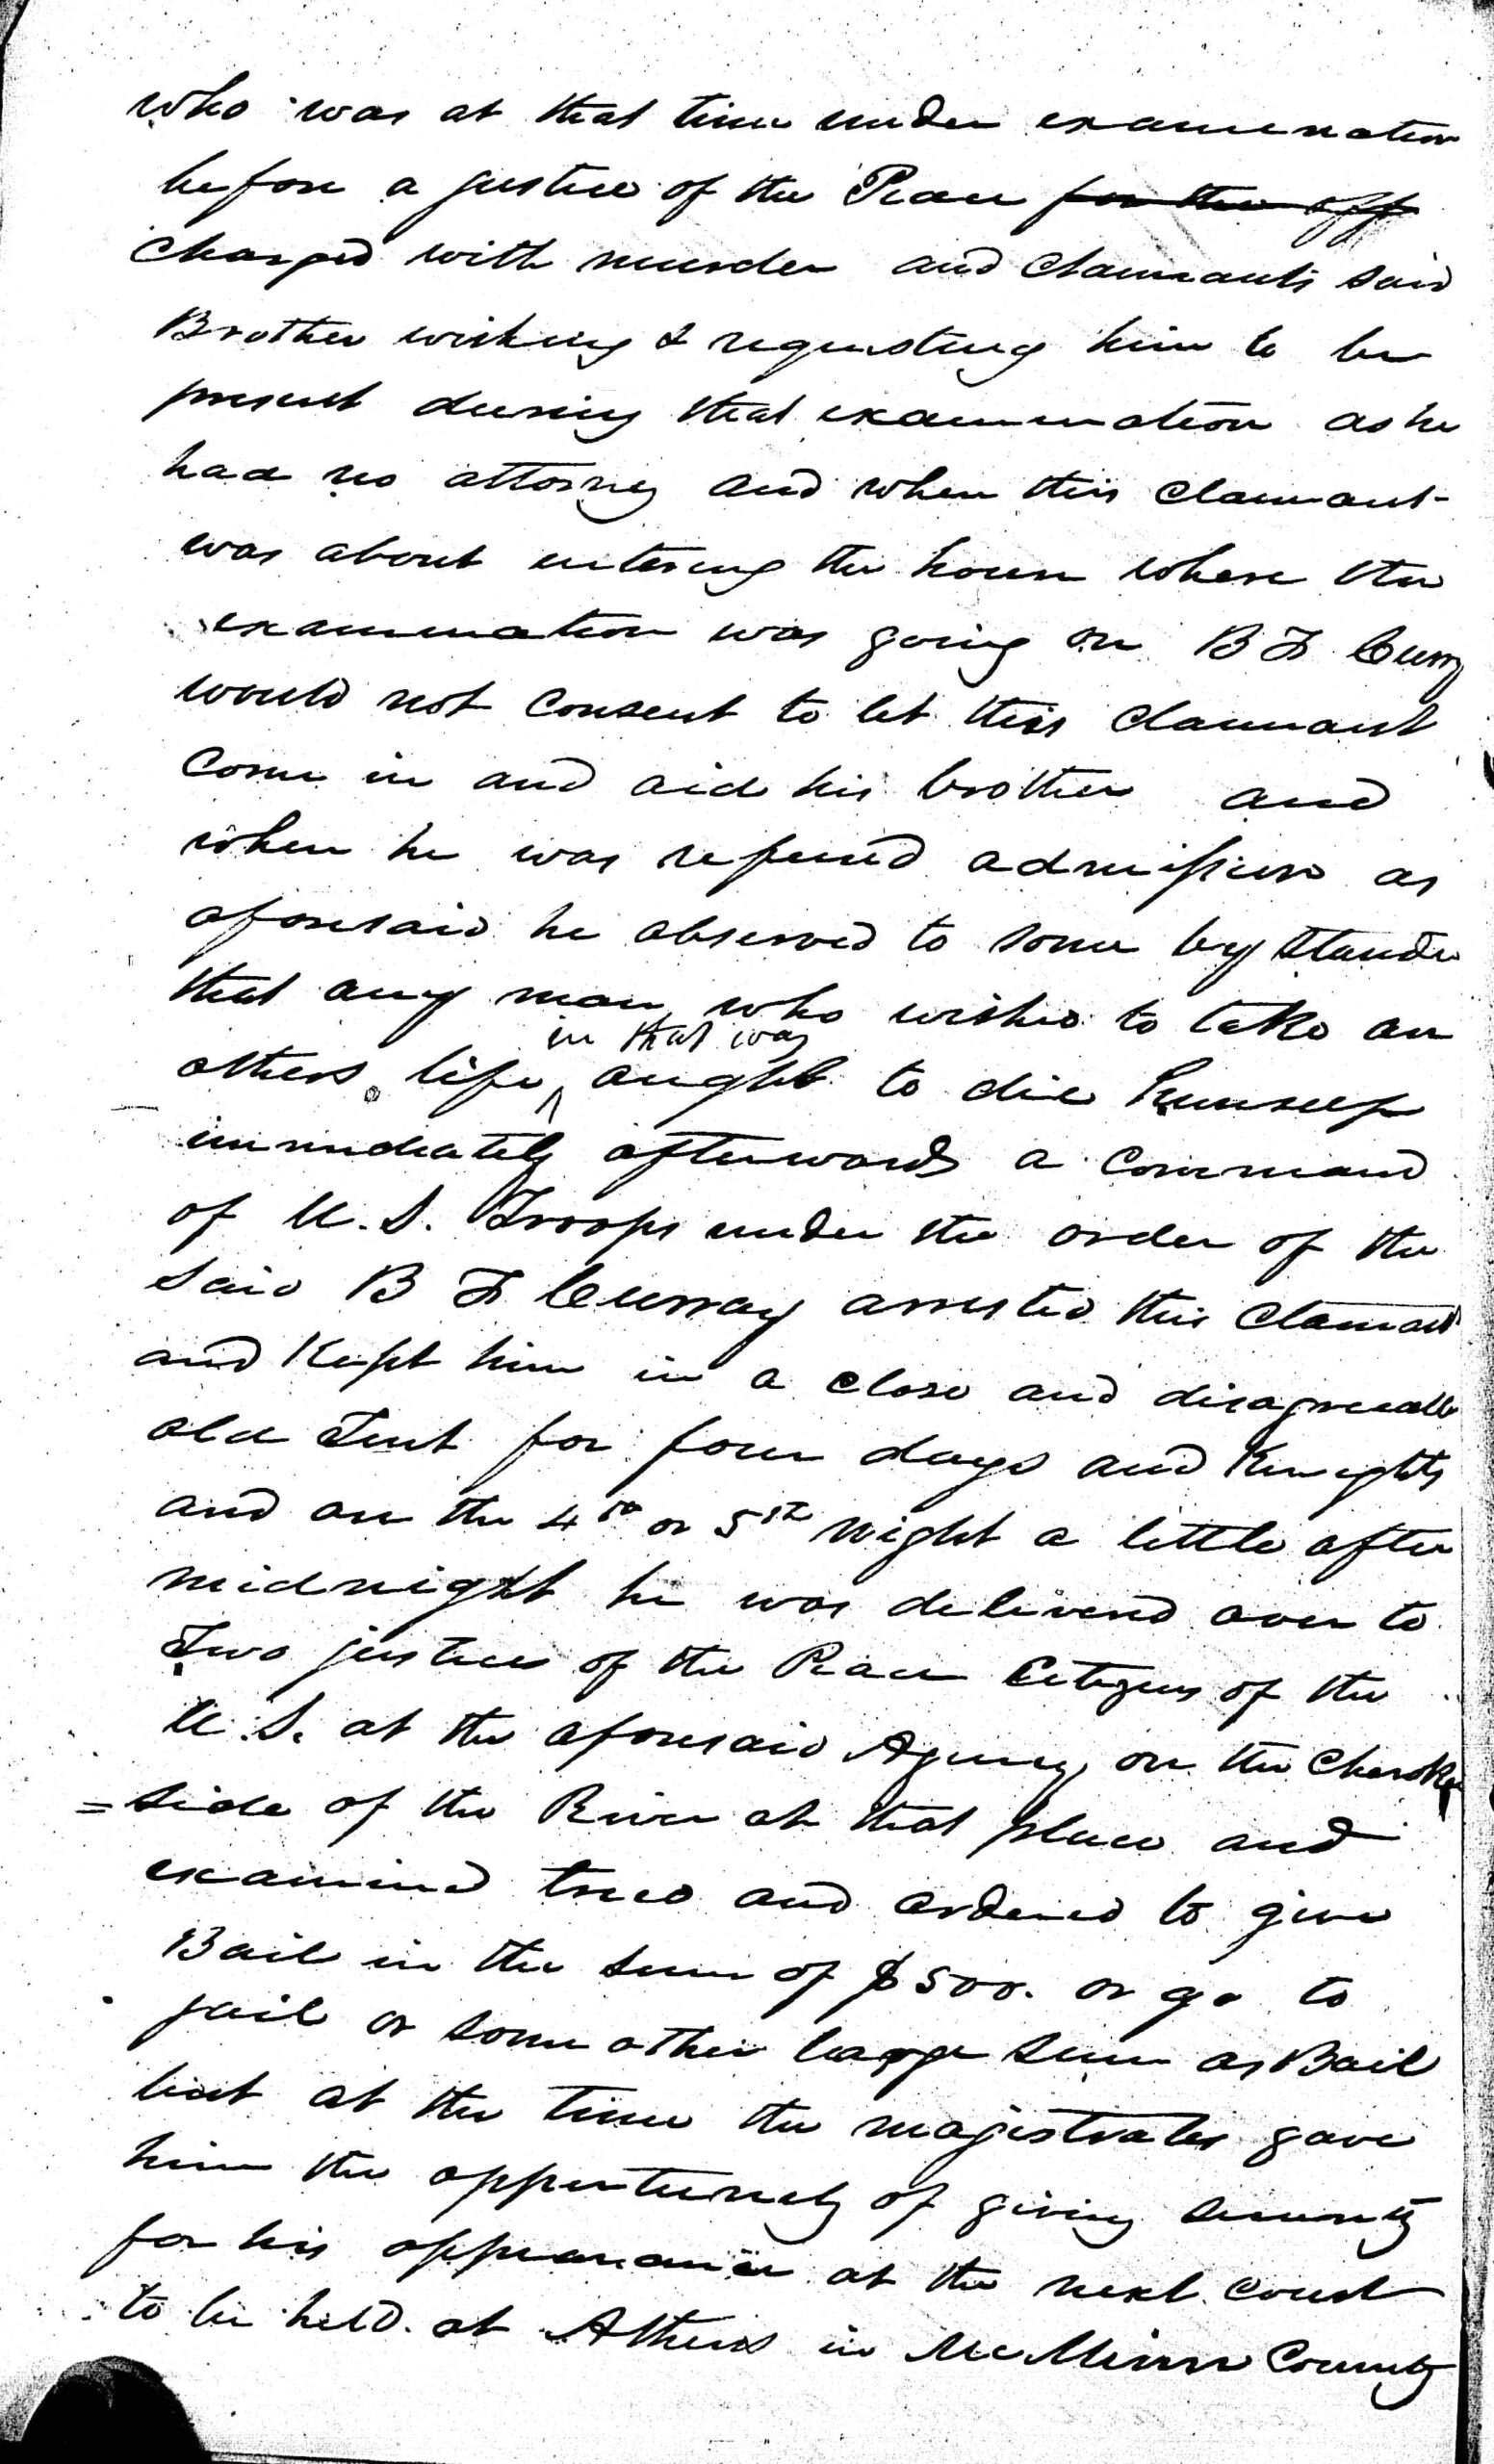 who was at that time under examination
before a justice of the Peace for the off
charged with murder and Claimants said
Brother wishing & requesting him to be
present during that examination as he
had no attorney and when this claimant
was about entering the house where the
examination was going on B F Curry
would not consent to let this claimant
come in and aid his brother and
when he was refused admission as
aforesaid he observed to some by stander
that any man who wishes to take an
others life in that way aught to die himself
immediately afterwards a command
of U.S. Troops under the order of the
said B F Curray arrested this Claimant
and Kept him in a close and disagreeable
old Tent for four days and Knights
and on the 4th or 5th night a little after
midnight he was delivered over to
Two justices of the Peace Citizens of the
U.S. at the aforesaid Agency on the Cherokee
= side of the River at that place and
examined tried and ordered to give
Bail in the sum of $500. or go to
jail or some other large sum as Bail
but at the time the magistrates gave
him the oppertunety of giving security
for his appearance at the next Court
to be held at Athens in McMinn County